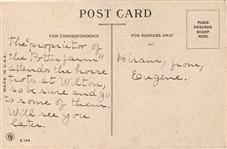 POST CARD
FOR CORRESPONDENCE
FOR ADDRESS ONLY
PLACE
POSTAGE
STAMP
HERE
MADE IN U.S.A.
The "proprietor of
the Potter farm"
attends the horse
trots at Wilton,
so be sure and go
to some of them.
Will see you
later.
Hiram, from,
Eugene.